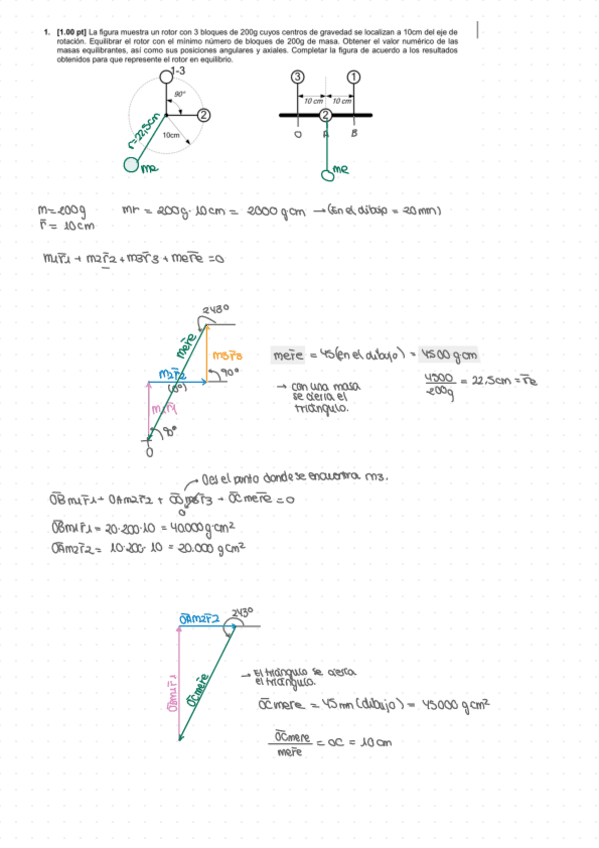 1. [1.00 pt] La figura muestra un rotor con 3 bloques de 200g cuyos centros de gravedad se localizan a 10cm del eje de
rotación. Equilibrar el rotor con el mínimo número de bloques de 200g de masa. Obtener el valor numérico de las
masas equilibrantes, así como sus posiciones angulares y axiales. Completar la figura de acuerdo a los resultados
obtenidos para que represente el rotor en equilibrio.
1-3
90°
2
r=22,5cm
10cm
me
3
1
10 cm
10 cm
2
O
A
B
me
m=200g
r̅ = 10cm
mr = 200g · 10cm = 2000 gcm → (En el dibujo = 20mm)
m1r̅1 + m2r̅2 + m3r̅3 + mer̅e = 0
243º
mer̅e
m3r̅3
m2r̅2
(0º)
90º
m1r̅1
90º
O
mer̅e = 45(en el dibujo) = 4500 gcm
→ con una masa
se cierra el
triángulo.
4500/200g = 22,5cm = r̅e
→ O es el punto donde se encuentra m3.
O̅B̅m1r̅1 + O̅A̅m2r̅2 + O̅O̅m3r̅3 + O̅C̅mer̅e = 0
0
O̅B̅m1r̅1 = 20·200·10 = 40.000 g·cm²
O̅A̅m2r̅2 = 10·200·10 = 20.000 gcm²
O̅A̅m2r̅2
243º
O̅B̅m1r̅1
O̅C̅mer̅e
→ El triángulo se cierra
el triángulo.
O̅C̅mere = 45mm (dibujo) = 45000 gcm²
O̅C̅mere/mer̅e = OC = 10cm